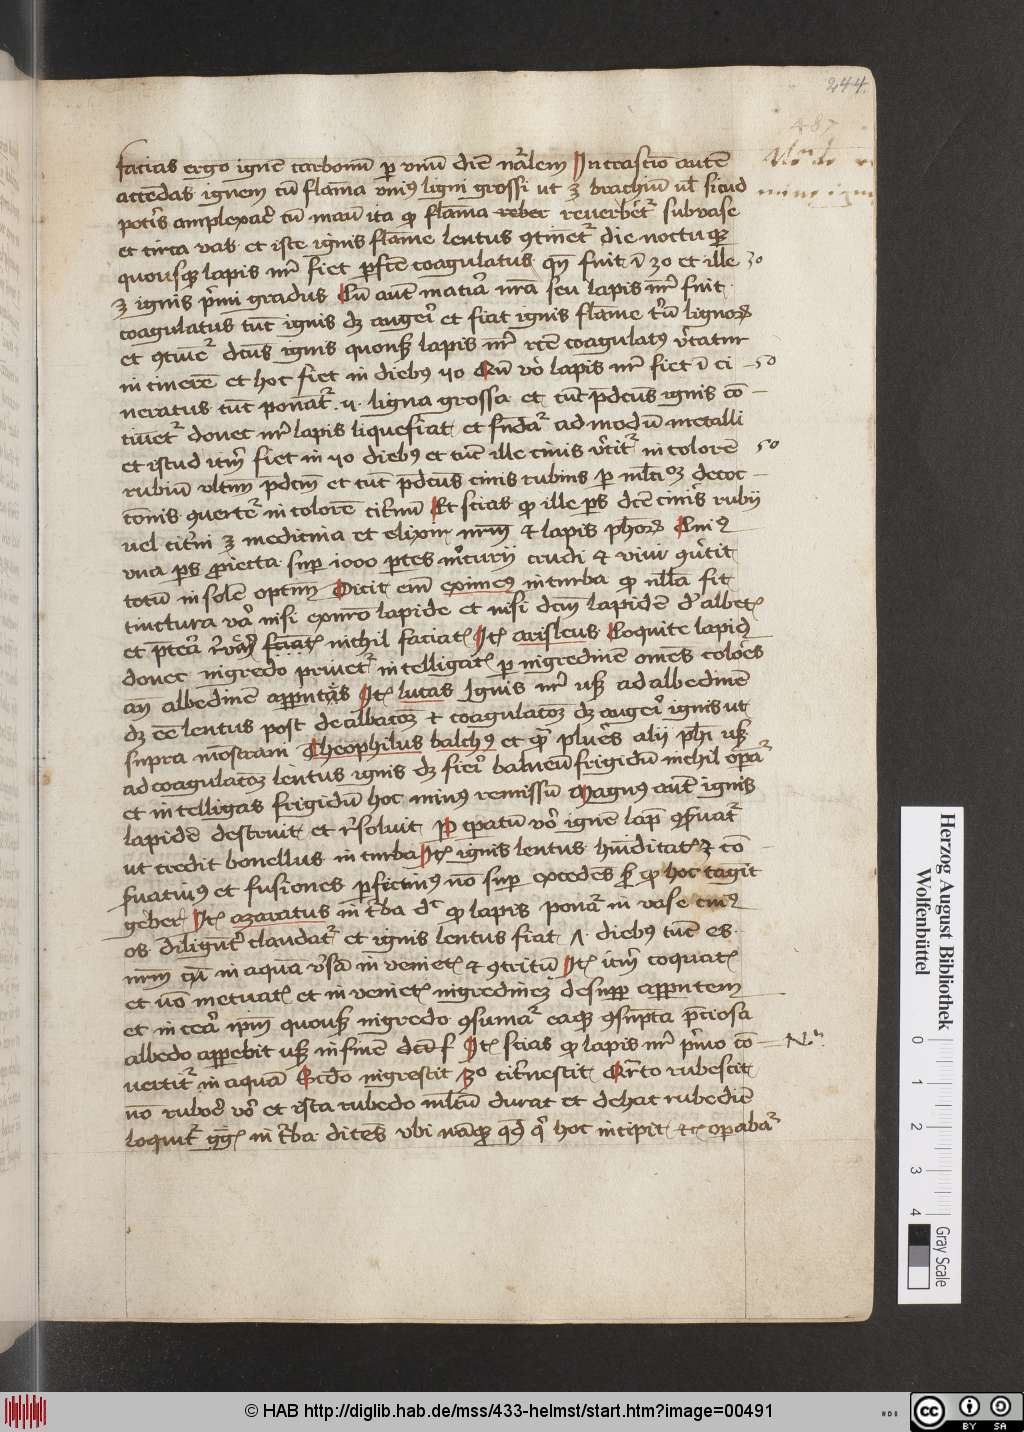 244.
487
facias ergo ignē carbonū p vnū diē nālem In crastīo autē
accēdas ignem cū flāma vniꝰ ligni grossi ut ȝ brachiū ul sicud
potis amplexari cū manu ita ꝙ flāma reber reuerbet subvase
et circa vas et iste ignis flāme lentus ꝯtinet die noctuqꝫ
quousqꝫ lapis nr̄ fiet pfcē coagulatus qn̄ fuit ī 30 et ille 30
ȝ ignis pm̄i gradus Cū aut matīa nrā seu lapis nr̄ fuit
coagulatus tūc ignis dꝫ augeri et fiat ignis flāme triū lignoꝝ
et ꝯtinet dcūs ignis quousqꝫ lapis nr̄ coagulatꝰ vtatur
in cinerē et hoc fiet in diebꝰ 40 Cū vo lapis nr̄ fiet ī ci 50
neratus tūc ponat 4 ligna grossa et tūc pdcūs ignis cō
tinet donec nr̄ lapis liquefiat et fūdat ad modū metalli
et istud itm̄ fiet in 40 diebꝰ et tūc ille cinis vtit in colorē 50
rubiū vltm pdcm et tūc pdcūs cinis rubius p mltāoȝ decoc
conis ꝯuertet in colorē citnū Et scias ꝙ ille ps dcē cinis rubij
uel citni ȝ medicina et elixir nrm̄ & lapis phoꝝ Cuiꝰ
vna ps proiecta sup 1000 ptes mcurij crudi & viui ꝯutit
totū in solē optm Dicit em̄ eximeꝰ in turba ꝙ nlla fit
tinctura va nisi ex nro lapide et nisi dcm lapidē dealbet
et ptea nichil faciat It arisleus Coquite lapid
donec nigredo priuet intelligat p nigredinē om̄es colores
an albedinē It lucas Ignis nr̄ usqꝫ ad albedinē
dꝫ eē lentus post dealbacoȝ & coagulacoȝ dꝫ augeri ignis ut
supra mōstraui Theophilus balchꝰ et plures alij phi usqꝫ
ad coagulacoȝ lentus ignis dꝫ fieri balneū frigidū nichil opat
et intelligas frigidū hoc minꝰ remissū Magnus aut ignis
lapidē destruit et rsoluit tpatū vo ignē lap ꝯseruat
ut credit bonellus in turba It ignis lentus humiditatꝫ ȝ cō
suatiuꝰ et fusiones pfectiuꝰ nō sup excedēs sꝫ ꝙ hoc tāgit
geber It azaratus in tba dc ꝙ lapis ponat in vase cuiꝰ
os diligent claudat et ignis lentus fiat diebꝰ tūc es
nrm in aquā vsā inueniet & ꝯtritū It itm̄ coquat
et nō metuat et inueniet nigredinē desup apputem
et in cea ipm̄ quousqꝫ nigredo ꝯsumat eaqꝫ ꝯsupta pciosa
albedo appebit usqꝫ in finē It scias ꝙ lapis nr̄ pmo cō Nᵃ
vertit in aquā Scdo nigrescit 3o citrnescit Qrto rubescit
nō ruboe vo et ista rubedo mltū durat et de hac rubediē
loquit in tba dicēs vbi nāqꝫ hoc incipit &c opabat
Herzog August Bibliothek
Wolfenbüttel
0 1 2 3 4
Gray Scale
© HAB http://diglib.hab.de/mss/433-helmst/start.htm?image=00491
cc BY SA